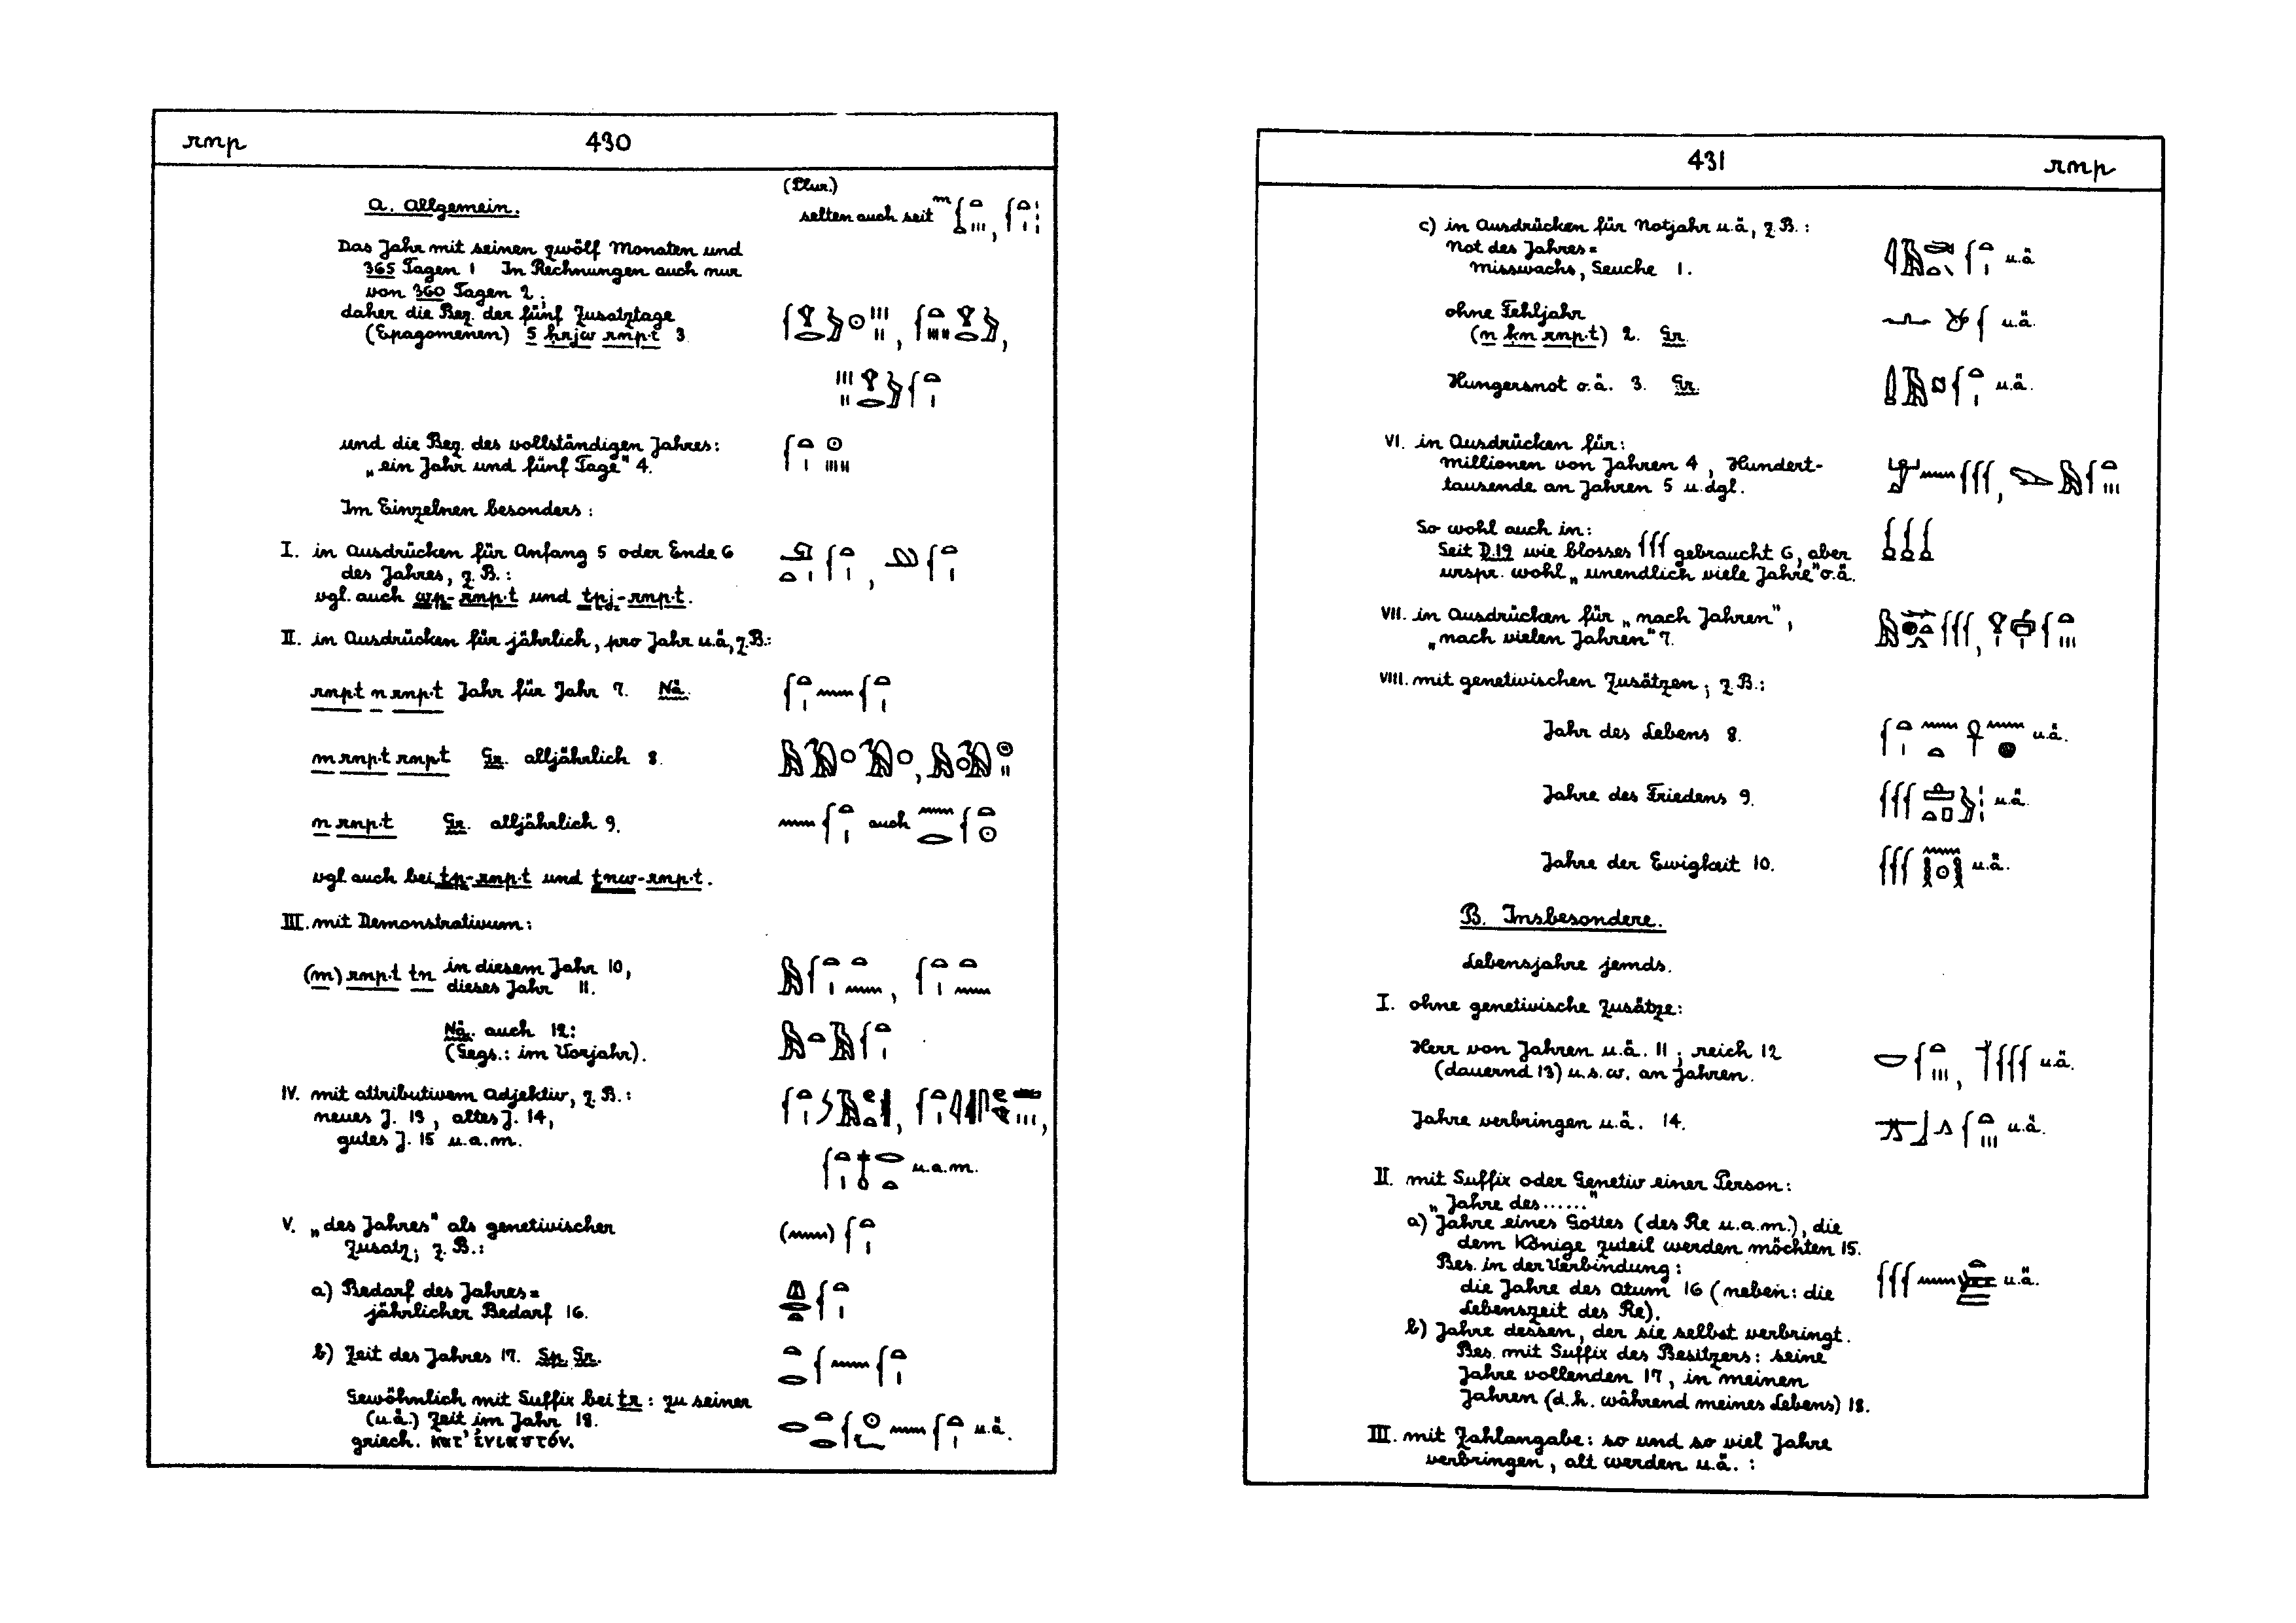 rnp 430
(Plur.)
A. Allgemein.
selten auch seit M
Das Jahr mit seinen zwölf Monaten und
365 Tagen 1 In Rechnungen auch nur
von 360 Tagen 2;
daher die Bez. der fünf Zusatztage
(Epagomenen) 5 ḥrjw rnp.t 3.
und die Bez. des vollständigen Jahres:
„ein Jahr und fünf Tage" 4.
Im Einzelnen besonders:
I. in Ausdrücken für Anfang 5 oder Ende 6
des Jahres, z.B.:
vgl. auch wp-rnp.t und tpj-rnp.t.
II. in Ausdrücken für jährlich, pro Jahr u.ä, z.B:
rnp.t n rnp.t Jahr für Jahr 7. Nä.
m rnp.t rnp.t Gr. alljährlich 8.
n rnp.t Gr. alljährlich 9. auch
vgl auch bei tp-rnp.t und ṯnw-rnp.t.
III. mit Demonstrativum:
(m) rnp.t tn in diesem Jahr 10,
dieses Jahr 11.
Nä. auch 12:
(Gegs.: im Vorjahr).
IV. mit attributivem Adjektiv, z.B.:
neues J. 13, altes J. 14,
gutes J. 15 u.a.m.
u.a.m.
V. „des Jahres" als genetivischer
Zusatz; z.B.:
a) Bedarf des Jahres =
jährlicher Bedarf 16.
b) Zeit des Jahres 17. Sp. Gr.
Gewöhnlich mit Suffix bei tr: zu seiner
(u.ä.) Zeit im Jahr 18. u.ä.
griech. κατ' ἐνιαυτόν.
431 rnp
c) in Ausdrücken für Notjahr u.ä, z.B.:
Not des Jahres = u.ä
Misswachs, Seuche 1.
ohne Fehljahr u.ä.
(n km rnp.t) 2. Gr.
Hungersnot o.ä. 3. Gr. u.ä.
VI. in Ausdrücken für:
Millionen von Jahren 4, Hundert-
tausende an Jahren 5 u.dgl.
So wohl auch in:
Seit D.19 wie blosses gebraucht 6, aber
urspr. wohl „unendlich viele Jahre" o.ä.
VII. in Ausdrücken für „nach Jahren",
„nach vielen Jahren" 7.
VIII. mit genetivischen Zusätzen; z.B.:
Jahr des Lebens 8. u.ä.
Jahre des Friedens 9. u.ä.
Jahre der Ewigkeit 10. u.ä.
B. Insbesondere.
Lebensjahre jemds.
I. ohne genetivische Zusätze:
Herr von Jahren u.ä. 11; reich 12 u.ä.
(dauernd 13) u.s.w. an Jahren.
Jahre verbringen u.ä. 14. u.ä.
II. mit Suffix oder Genetiv einer Person:
„Jahre des......"
a) Jahre eines Gottes (des Re u.a.m.), die
dem Könige zuteil werden möchten 15.
Bes. in der Verbindung: u.ä.
die Jahre des Atum 16 (neben: die
Lebenszeit des Re).
b) Jahre dessen, der sie selbst verbringt.
Bes. mit Suffix des Besitzers: seine
Jahre vollenden 17, in meinen
Jahren (d.h. während meines Lebens) 18.
III. mit Zahlangabe: so und so viel Jahre
verbringen, alt werden u.ä. :